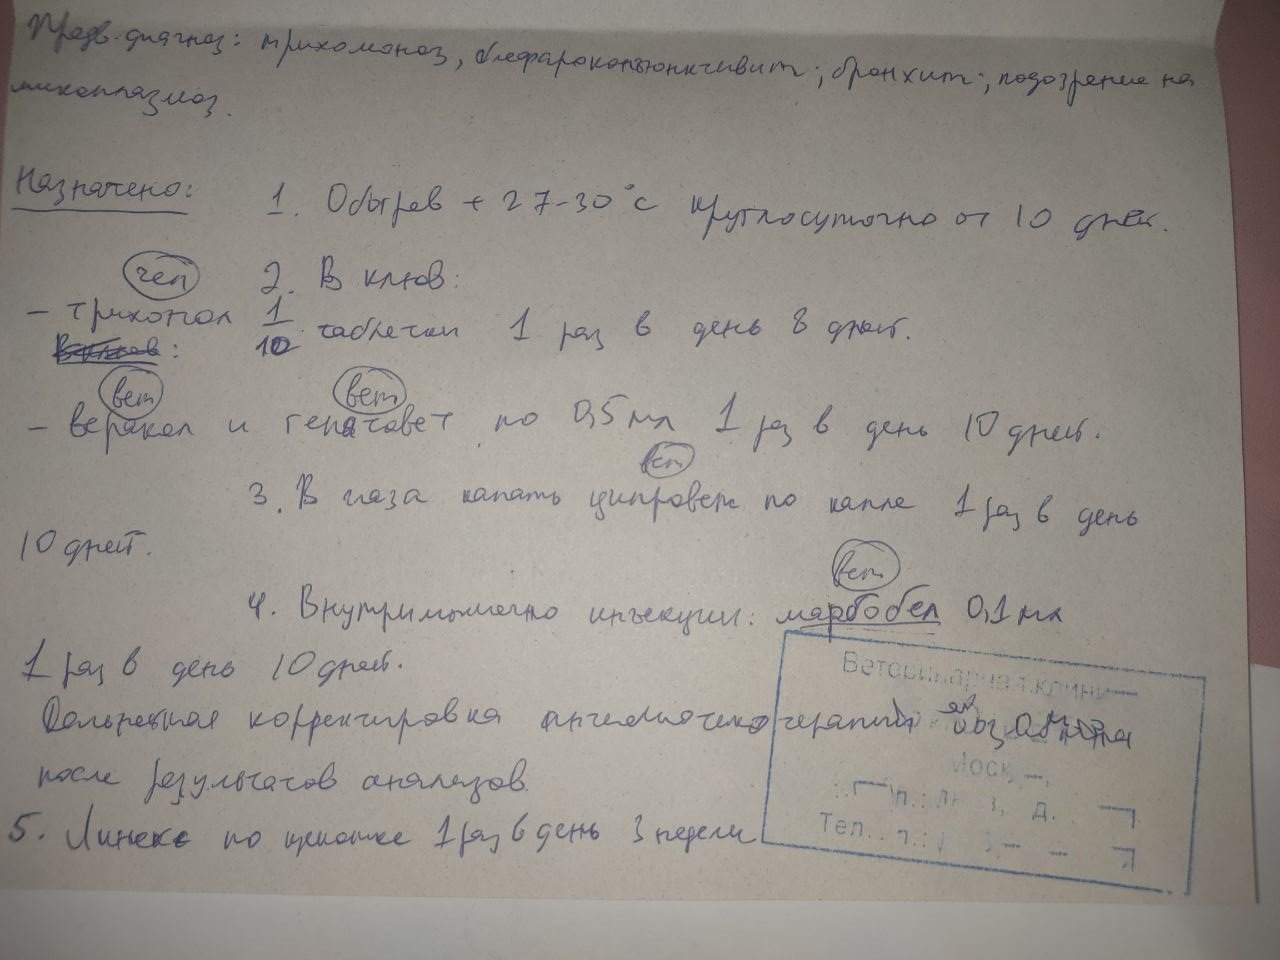 Предв. диагноз: трихомоноз, блефароконъюнктивит; бронхит; подозрение на
микоплазмоз.
Назначено: 1. Обогрев + 27-30°С круглосуточно от 10 дней.
чел 2. В клюв:
- трихопол 1/10 таблетки 1 раз в день 8 дней.
В клюв:
вет вет
- веракол и гепатовет по 0,5 мл 1 раз в день 10 дней.
вет
3. В глаза капать ципровет по капле 1 раз в день
10 дней.
вет
4. Внутримышечно инъекции: марбобел 0,1 мл
1 раз в день 10 дней.
Ветеринарная клини
Дальнейшая корректировка антибиотикотерапии
Моск
после результатов анализов.
д.
Тел.
5. Линекс по щепотке 1 раз в день 3 недели